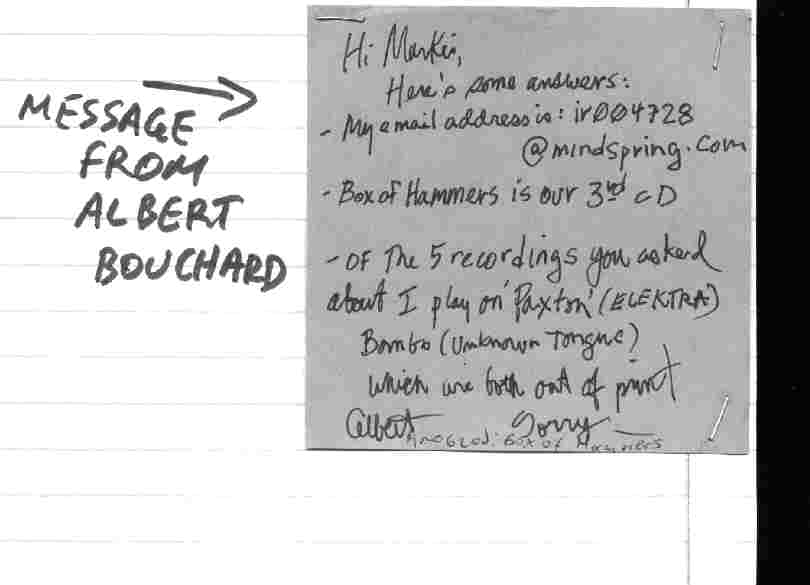 MESSAGE
FROM
ALBERT
BOUCHARD
Hi Markis,
Here's some answers:
- My email address is: ir004728
@mindspring.com
- Box of Hammers is our 3rd CD
- OF The 5 recordings you asked
about I play on 'Paxton' (ELEKTRA)
Bombo (Unknown Tongue)
which are both out of print
Albert Sorry
Box of Hammers